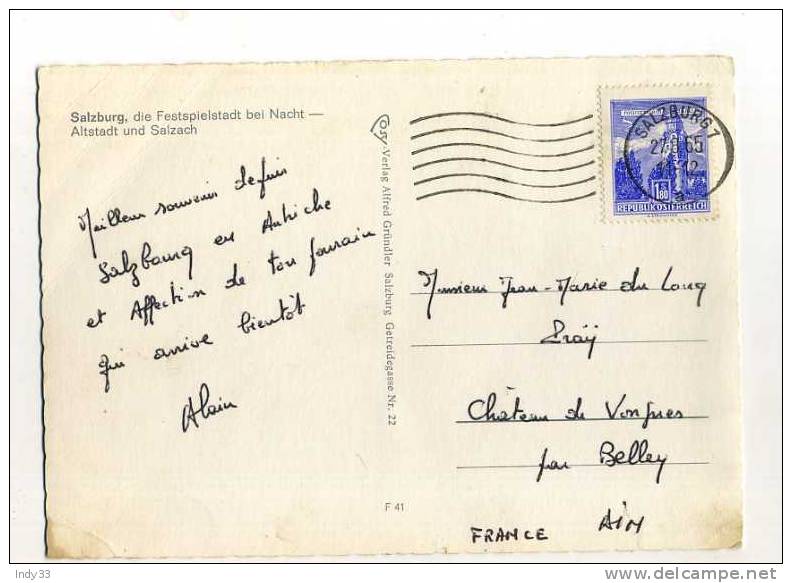 Salzburg, die Festspielstadt bei Nacht —
Altstadt und Salzach
Meilleur souvenir depuis
Salzbourg en Autriche
et Affection de ton
qui arrive bientôt
Alain
Cosy-Verlag Alfred Gründler Salzburg Getreidegasse Nr. 22
F 41
SALZBURG 7
65
1.80
REPUBLIK ÖSTERREICH
Monsieur Jean-Marie du Lang
Château de Vongnes
par Belley
AIN
FRANCE
Indy33